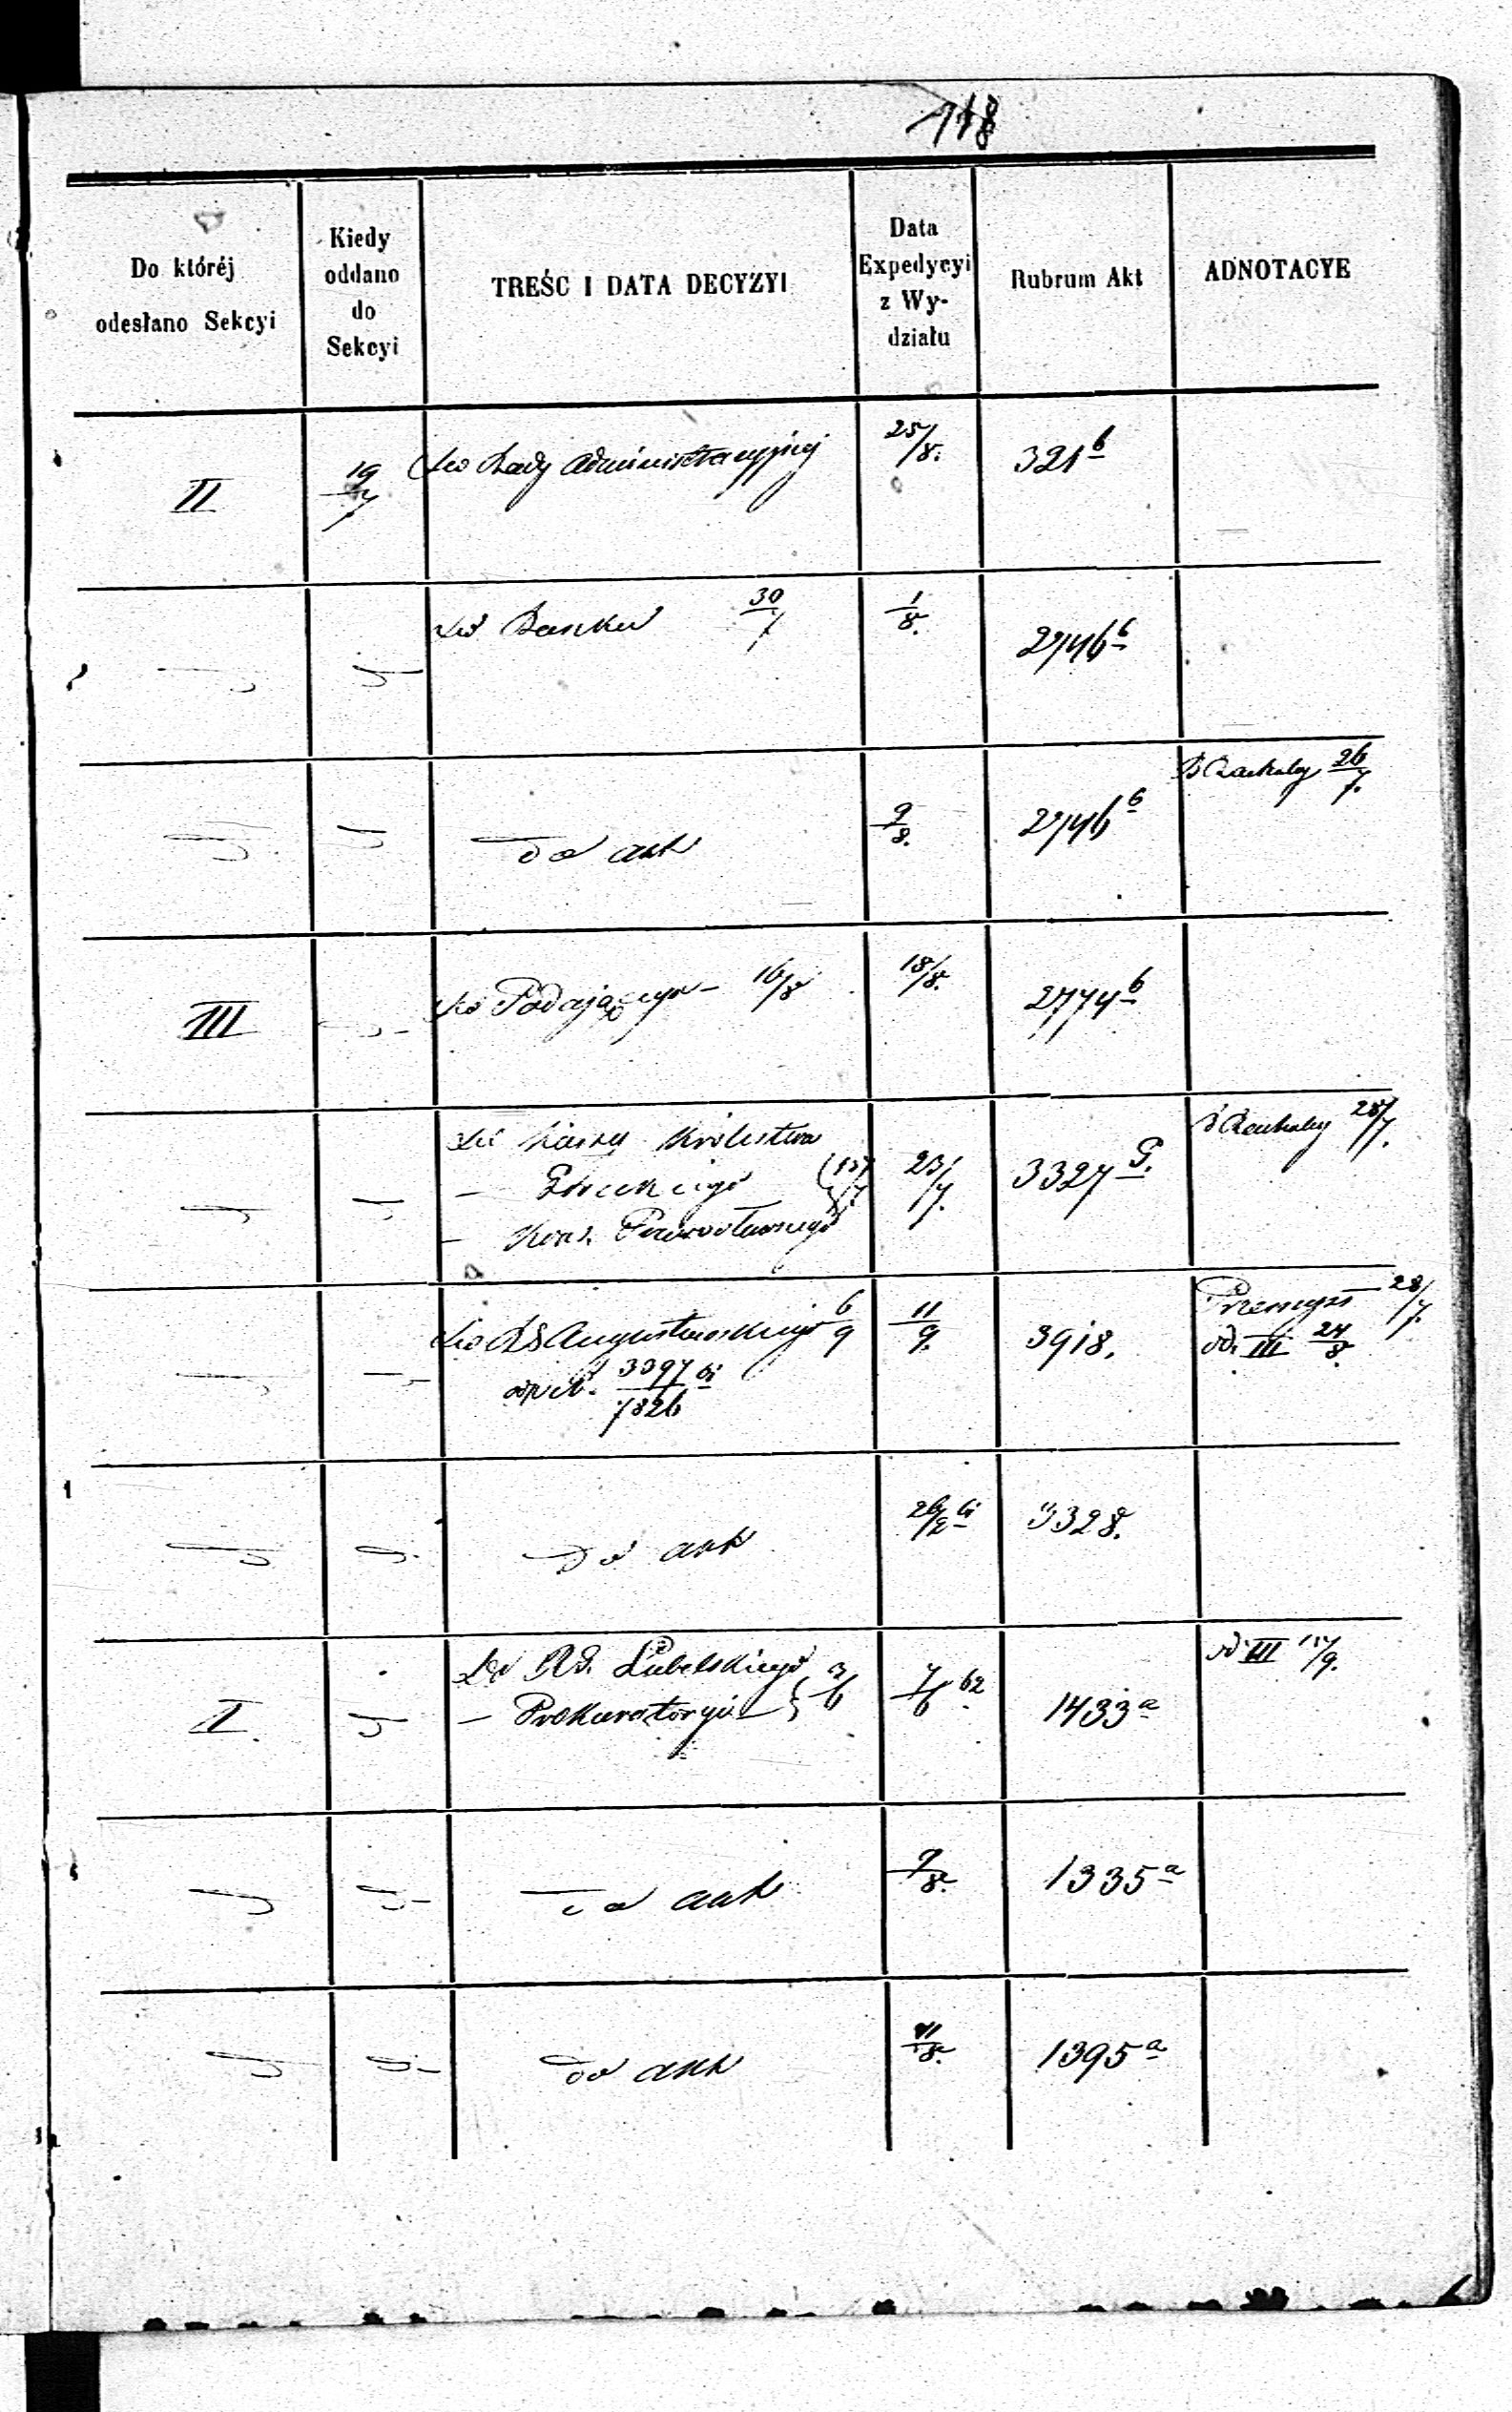 118
Do któréj
odesłano Sekcyi
Kiedy
oddano
do
Sekcyi
TREŚC I DATA DECYZYI
Data
Expedycyi
z Wy-
działu
Rubrum Akt
ADNOTACYE
II 19/7 Do Rady Administracyjnej 25/8. 321 b
Do Banku 30/7 1/8. 2746 b
26/7.
do akt 9/8. 2746 b
III Do Podającego – 16/8 18/8. 2774 b
Do Kassy Królestwa 28/7.
23/7. 3327 G.
– Kons.
Do RG Augustowskiego 6/9 11/9. 3918. Przemysł 28/7.
od III 24/8.
3397/7826
do akt 26/2 3328.
Do RG. Lubelskiego 3/6 7/6 62 od III
II – Prokuratoryi – 1433 a
do akt 9/8. 1335 a
do akt 11/8. 1395 a